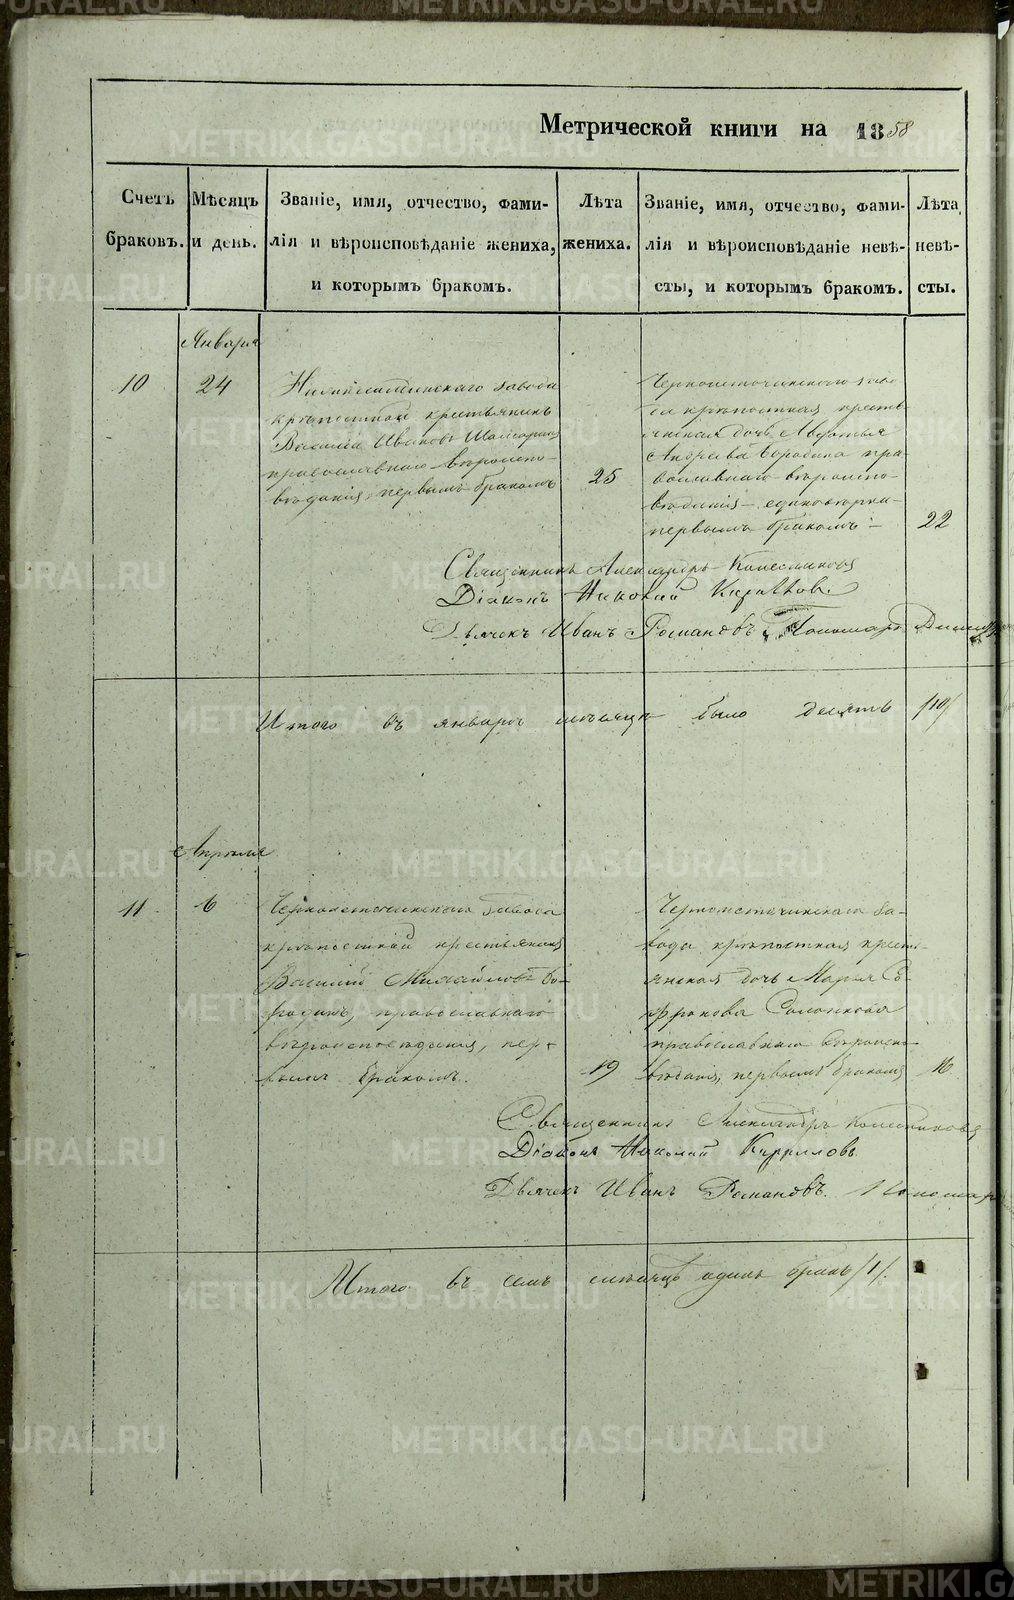 Метрической книги на 1858
Счетъ браковъ.
Мѣсяцъ и день.
Званіе, имя, отчество, фами-
лія и вѣроисповѣданіе жениха,
и которымъ бракомъ.
Лѣта жениха.
Званіе, имя, отчество, фами-
лія и вѣроисповѣданіе невѣ-
сты, и которымъ бракомъ.
Лѣта невѣ-
сты.
Января
10
24
завода
крѣпостной крестьянинъ
Василій Ивановъ
православнаго вѣроиспо-
вѣданія, первымъ бракомъ
25
Черноисточинскаго заво-
да крѣпостная кресть-
янская дочь Авдотья
Андреева Бородина пра-
вославнаго вѣроиспо-
вѣданія
первымъ бракомъ
22
Священникъ Александръ Колесниковъ
Діаконъ Николай Кирилловъ.
Дьячекъ Иванъ Романовъ Пономарь
Итого въ январѣ мѣсяцѣ было десять /10/
Апрѣля
11
6
Черноисточинскаго завода
крѣпостной крестьянинъ
Василій Михайловъ Бо-
родинъ, православнаго
вѣроисповѣданія, пер-
вымъ бракомъ.
19
Черноисточинскаго за-
вода крѣпостная кресть-
янская дочь Марья Со-
фронова
православнаго вѣроиспо-
вѣданія, первымъ бракомъ
16
Священникъ Александръ Колесниковъ
Діаконъ Николай Кирилловъ
Дьячекъ Иванъ Романовъ. Пономарь
Итого въ семъ мѣсяцѣ одинъ бракъ /1/.
METRIKI.GASO-URAL.RU